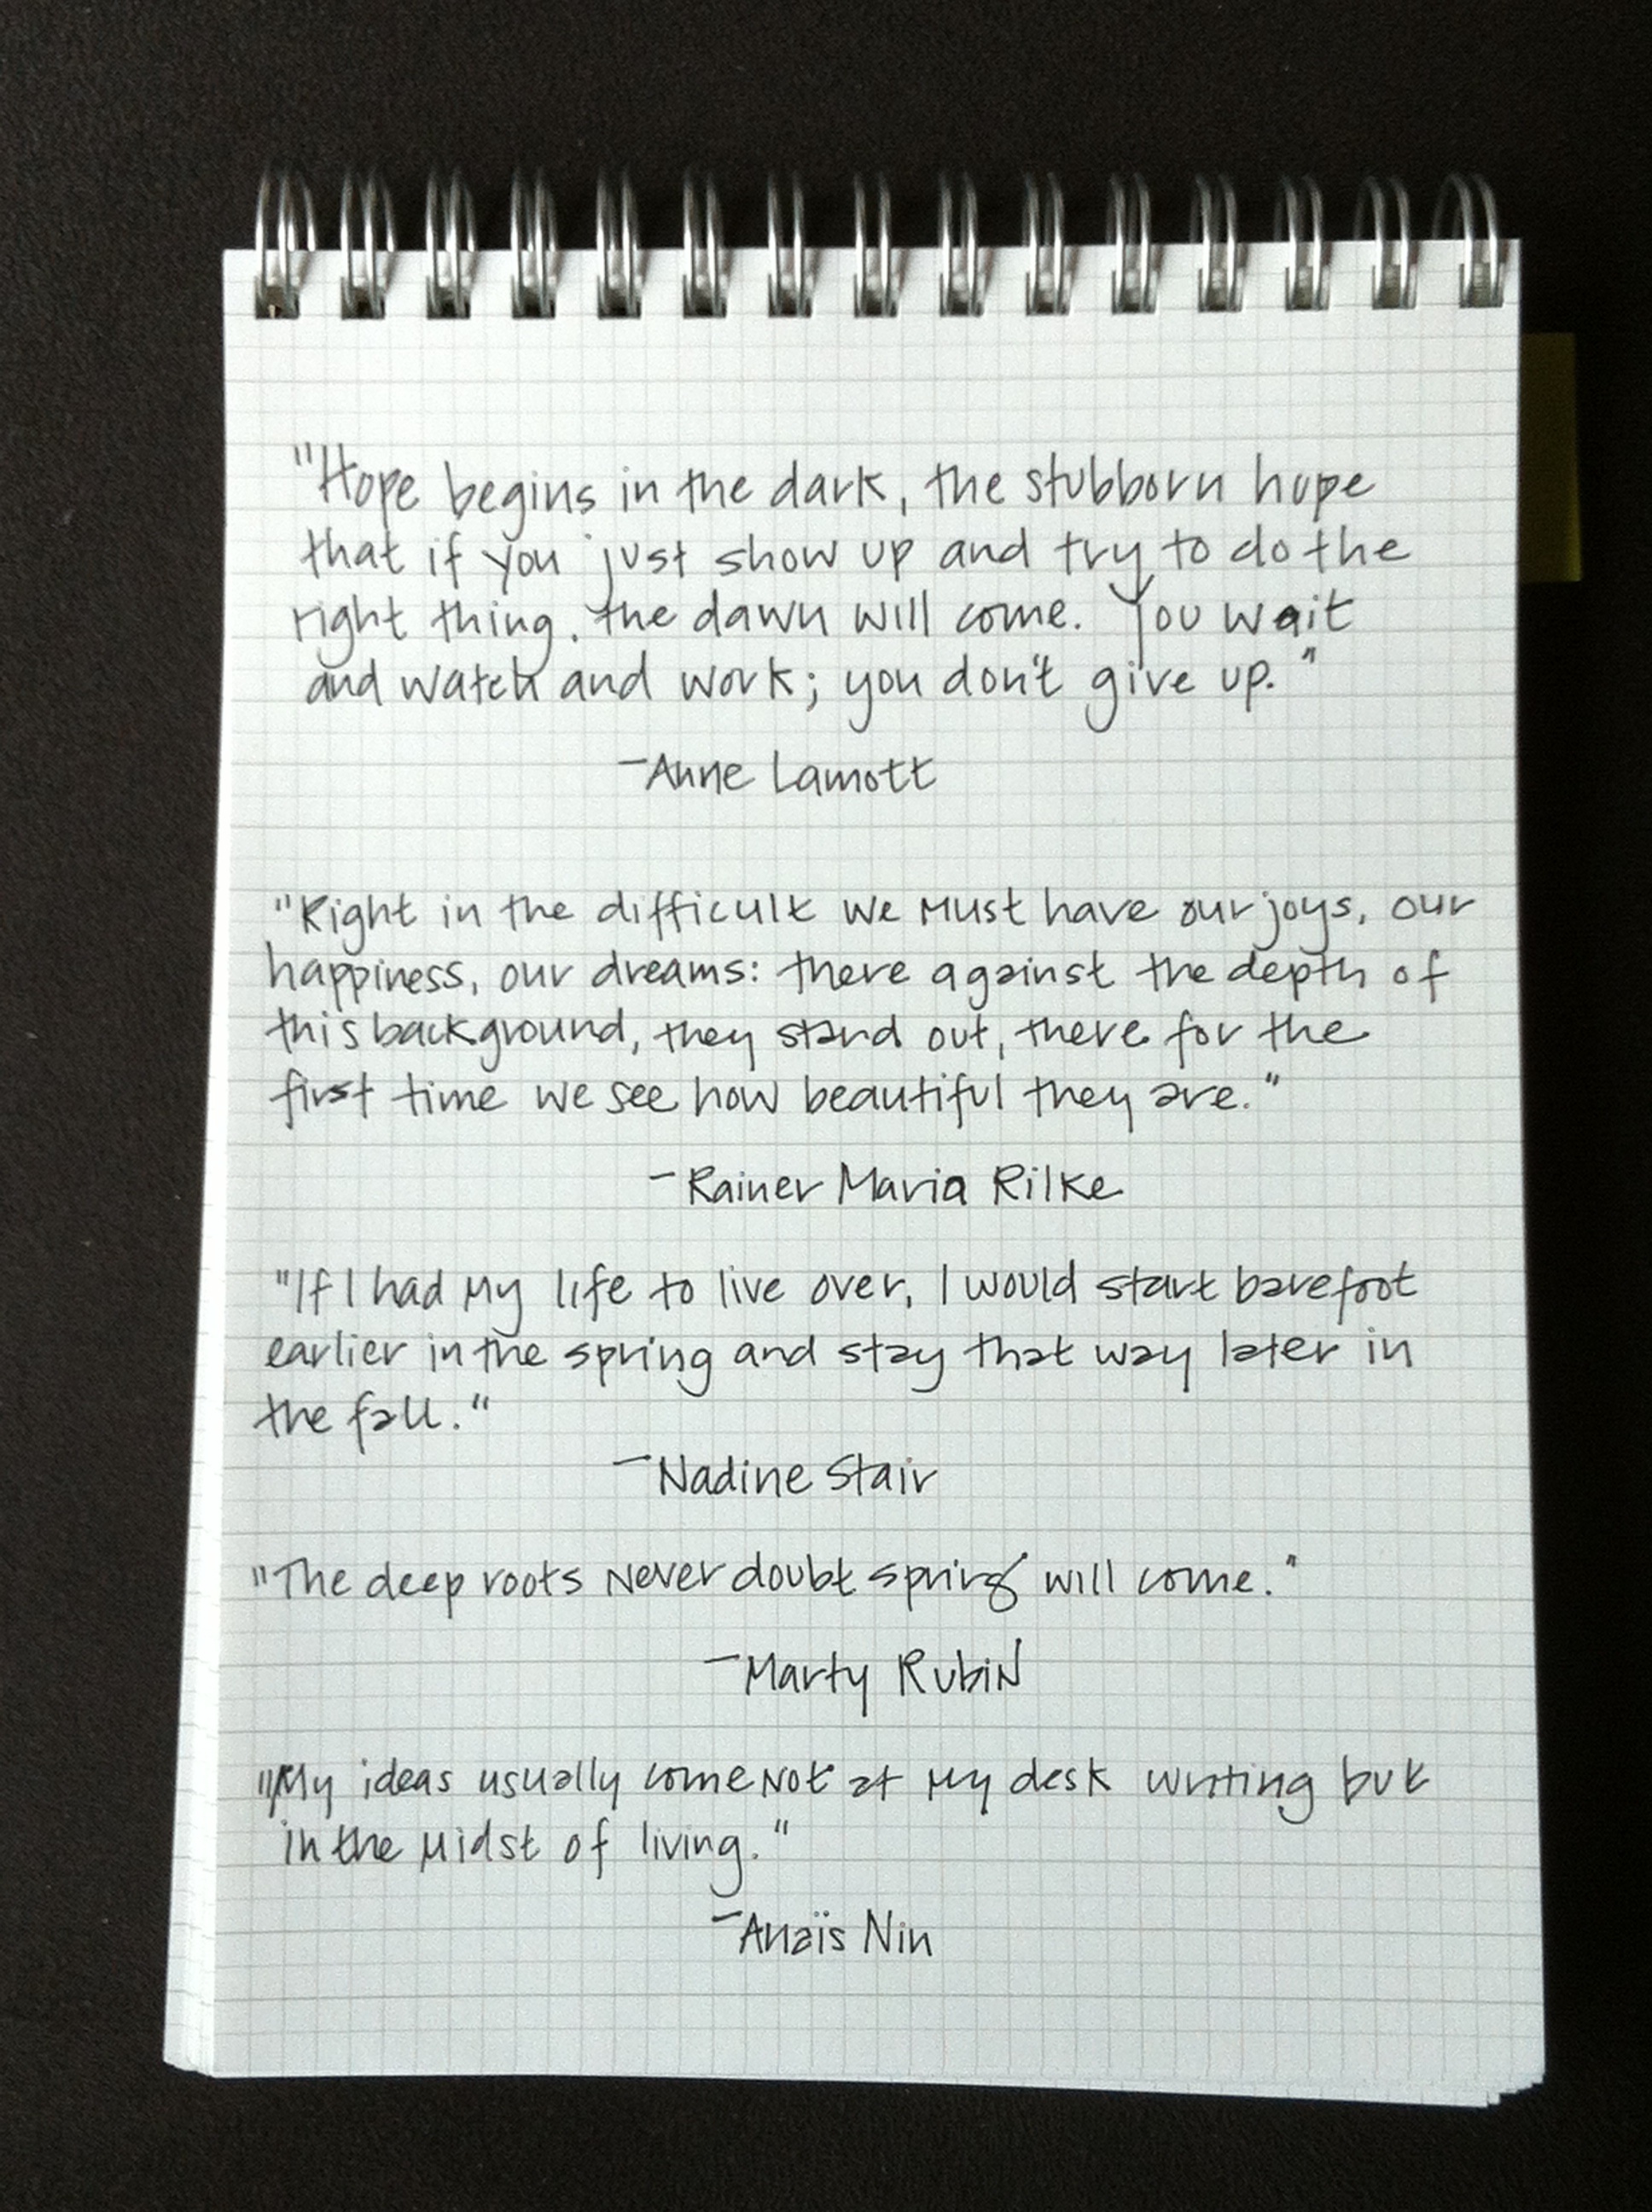 "Hope begins in the dark, the stubborn hope
that if you just show up and try to do the
right thing, the dawn will come. You wait
and watch and work; you don't give up."
-Anne Lamott
"Right in the difficult we must have our joys, our
happiness, our dreams: there against the depth of
this background, they stand out, there for the
first time we see how beautiful they are."
-Rainer Maria Rilke
"If I had my life to live over, I would start barefoot
earlier in the spring and stay that way later in
the fall."
-Nadine Stair
"The deep roots never doubt spring will come."
-Marty Rubin
"My ideas usually come not at my desk writing but
in the midst of living."
-Anaïs Nin